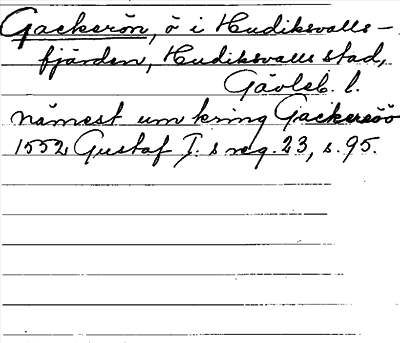 Gackerön, ö i Hudiksvalls-
fjärden, Hudiksvalls stad,
Gävleb. l.
nämest um kring Gackersöö
1552 Gustaf I:s reg. 23, s. 95.